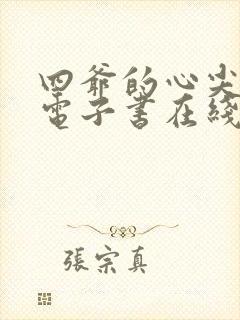 四爷的心尖
電子书在綫
張宗真